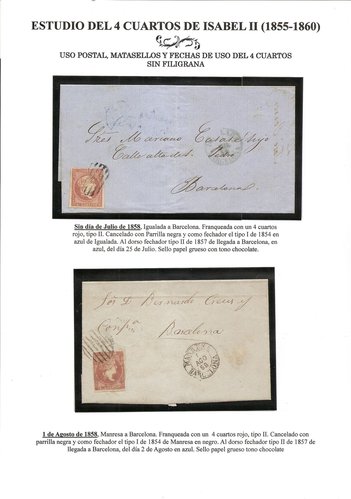 ESTUDIO DEL 4 CUARTOS DE ISABEL II (1855-1860)
USO POSTAL, MATASELLOS Y FECHAS DE USO DEL 4 CUARTOS
SIN FILIGRANA
Sres Mariano Casas é hijo
Calle alta de Sn Pedro
Barcelona
Sin día de Julio de 1858. Igualada a Barcelona. Franqueada con un 4 cuartos
rojo, tipo II. Cancelado con Parrilla negra y como fechador el tipo I de 1854 en
azul de Igualada. Al dorso fechador tipo II de 1857 de llegada a Barcelona, en
azul, del día 25 de Julio. Sello papel grueso con tono chocolate.
Sor D Bernardo
Barcelona
MANRESA
1
AGO
58
BARCELONA
1 de Agosto de 1858. Manresa a Barcelona. Franqueada con un 4 cuartos rojo, tipo II. Cancelado con
parrilla negra y como fechador el tipo I de 1854 de Manresa en negro. Al dorso fechador tipo II de 1857 de
llegada a Barcelona, del día 2 de Agosto en azul. Sello papel grueso tono chocolate